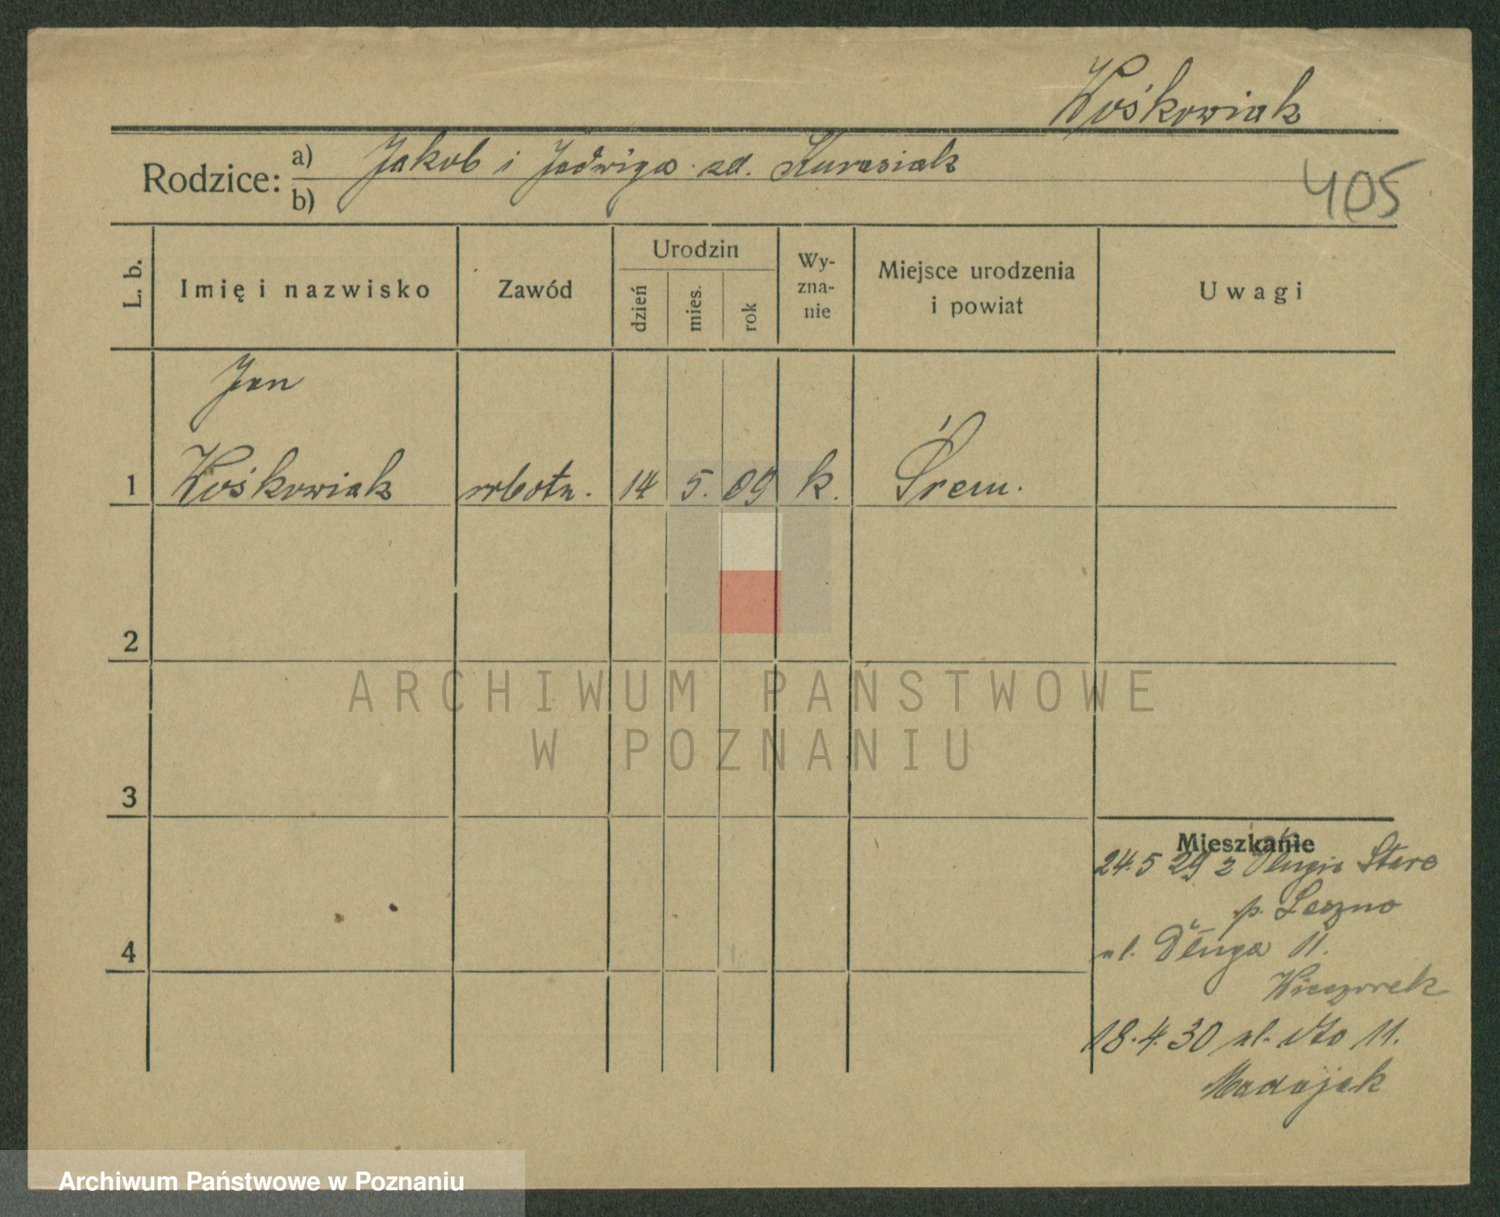 Wośkowiak
Rodzice: a) Jakob i Jadwiga zd. Kurasiak
b)
405
L. b.
Imię i nazwisko
Zawód
Urodzin
dzień
mies.
rok
Wy-
zna-
nie
Miejsce urodzenia
i powiat
Uwagi
Jan
1 Wośkowiak robotn. 14 5. 09 k. Śrem.
2
ARCHIWUM PAŃSTWOWE
W POZNANIU
3
Mieszkanie
24.5 29 z Długie Stare
p. Leszno
4
ul. Długa 11.
Wieczorek
18.4.30 ul. 11.
Madajak
Archiwum Państwowe w Poznaniu